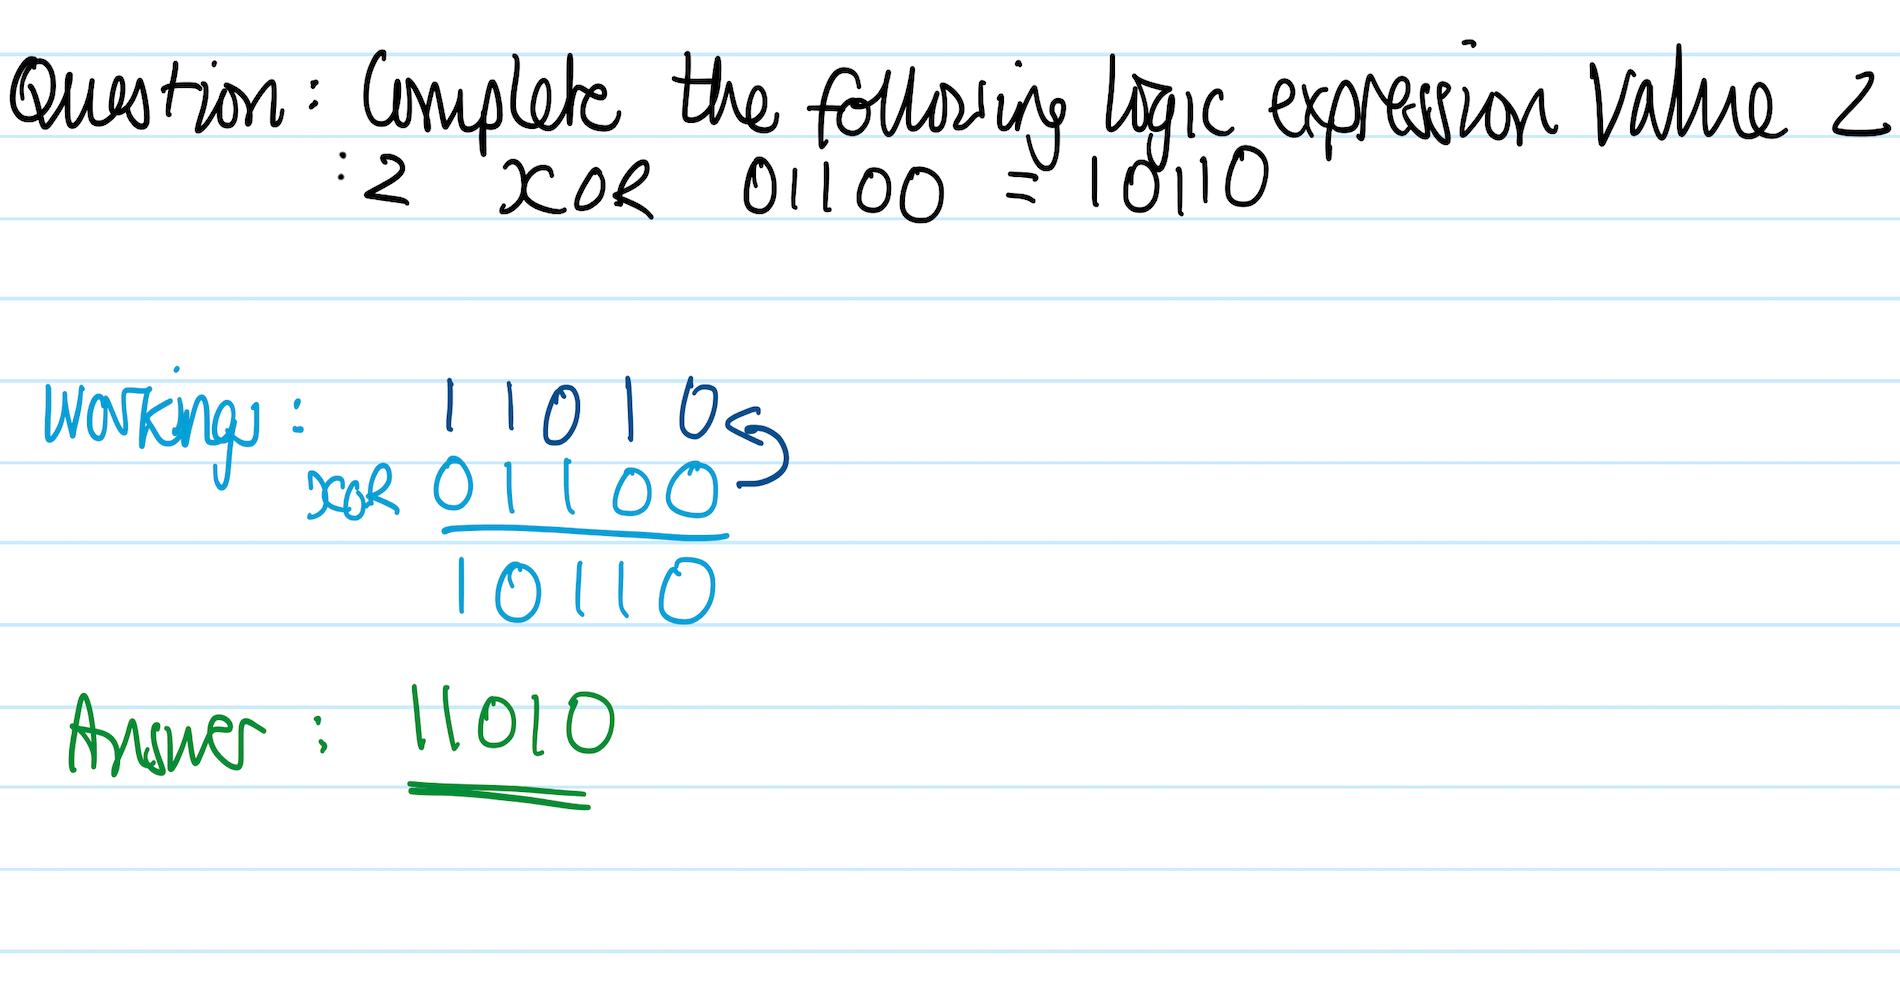 Question: Complete the following logic expression Value 2
: 2 XOR 01100 = 10110
Workings: 11010
XOR 01100
10110
Answer: 11010